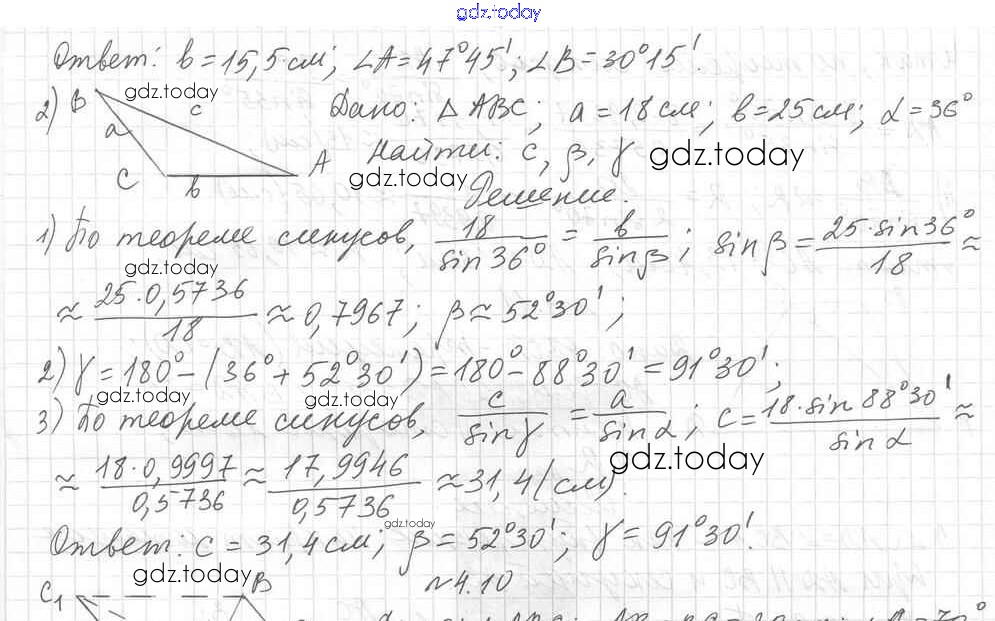 gdz.today
Ответ: b=15,5 см; ∠A=47°45'; ∠B=30°15'.
gdz.today
2) B a c A C b Дано: △ABC; a=18см; b=25см; α=36°
Найти: c, β, γ gdz.today
gdz.today
Решение.
1) По теореме синусов, 18/sin36° = b/sinβ; sinβ = 25·sin36°/18 ≈
gdz.today
≈ 25·0,5736/18 ≈ 0,7967; β≈52°30';
2) γ=180°-(36°+52°30')=180°-88°30'=91°30';
gdz.today gdz.today
3) По теореме синусов, c/sinγ = a/sinα; c= 18·sin88°30'/sinα ≈
gdz.today
≈ 18·0,9997/0,5736 ≈ 17,9946/0,5736 ≈ 31,4 (см).
gdz.today
Ответ: c=31,4см; β=52°30'; γ=91°30'.
gdz.today
C₁ B №4.10